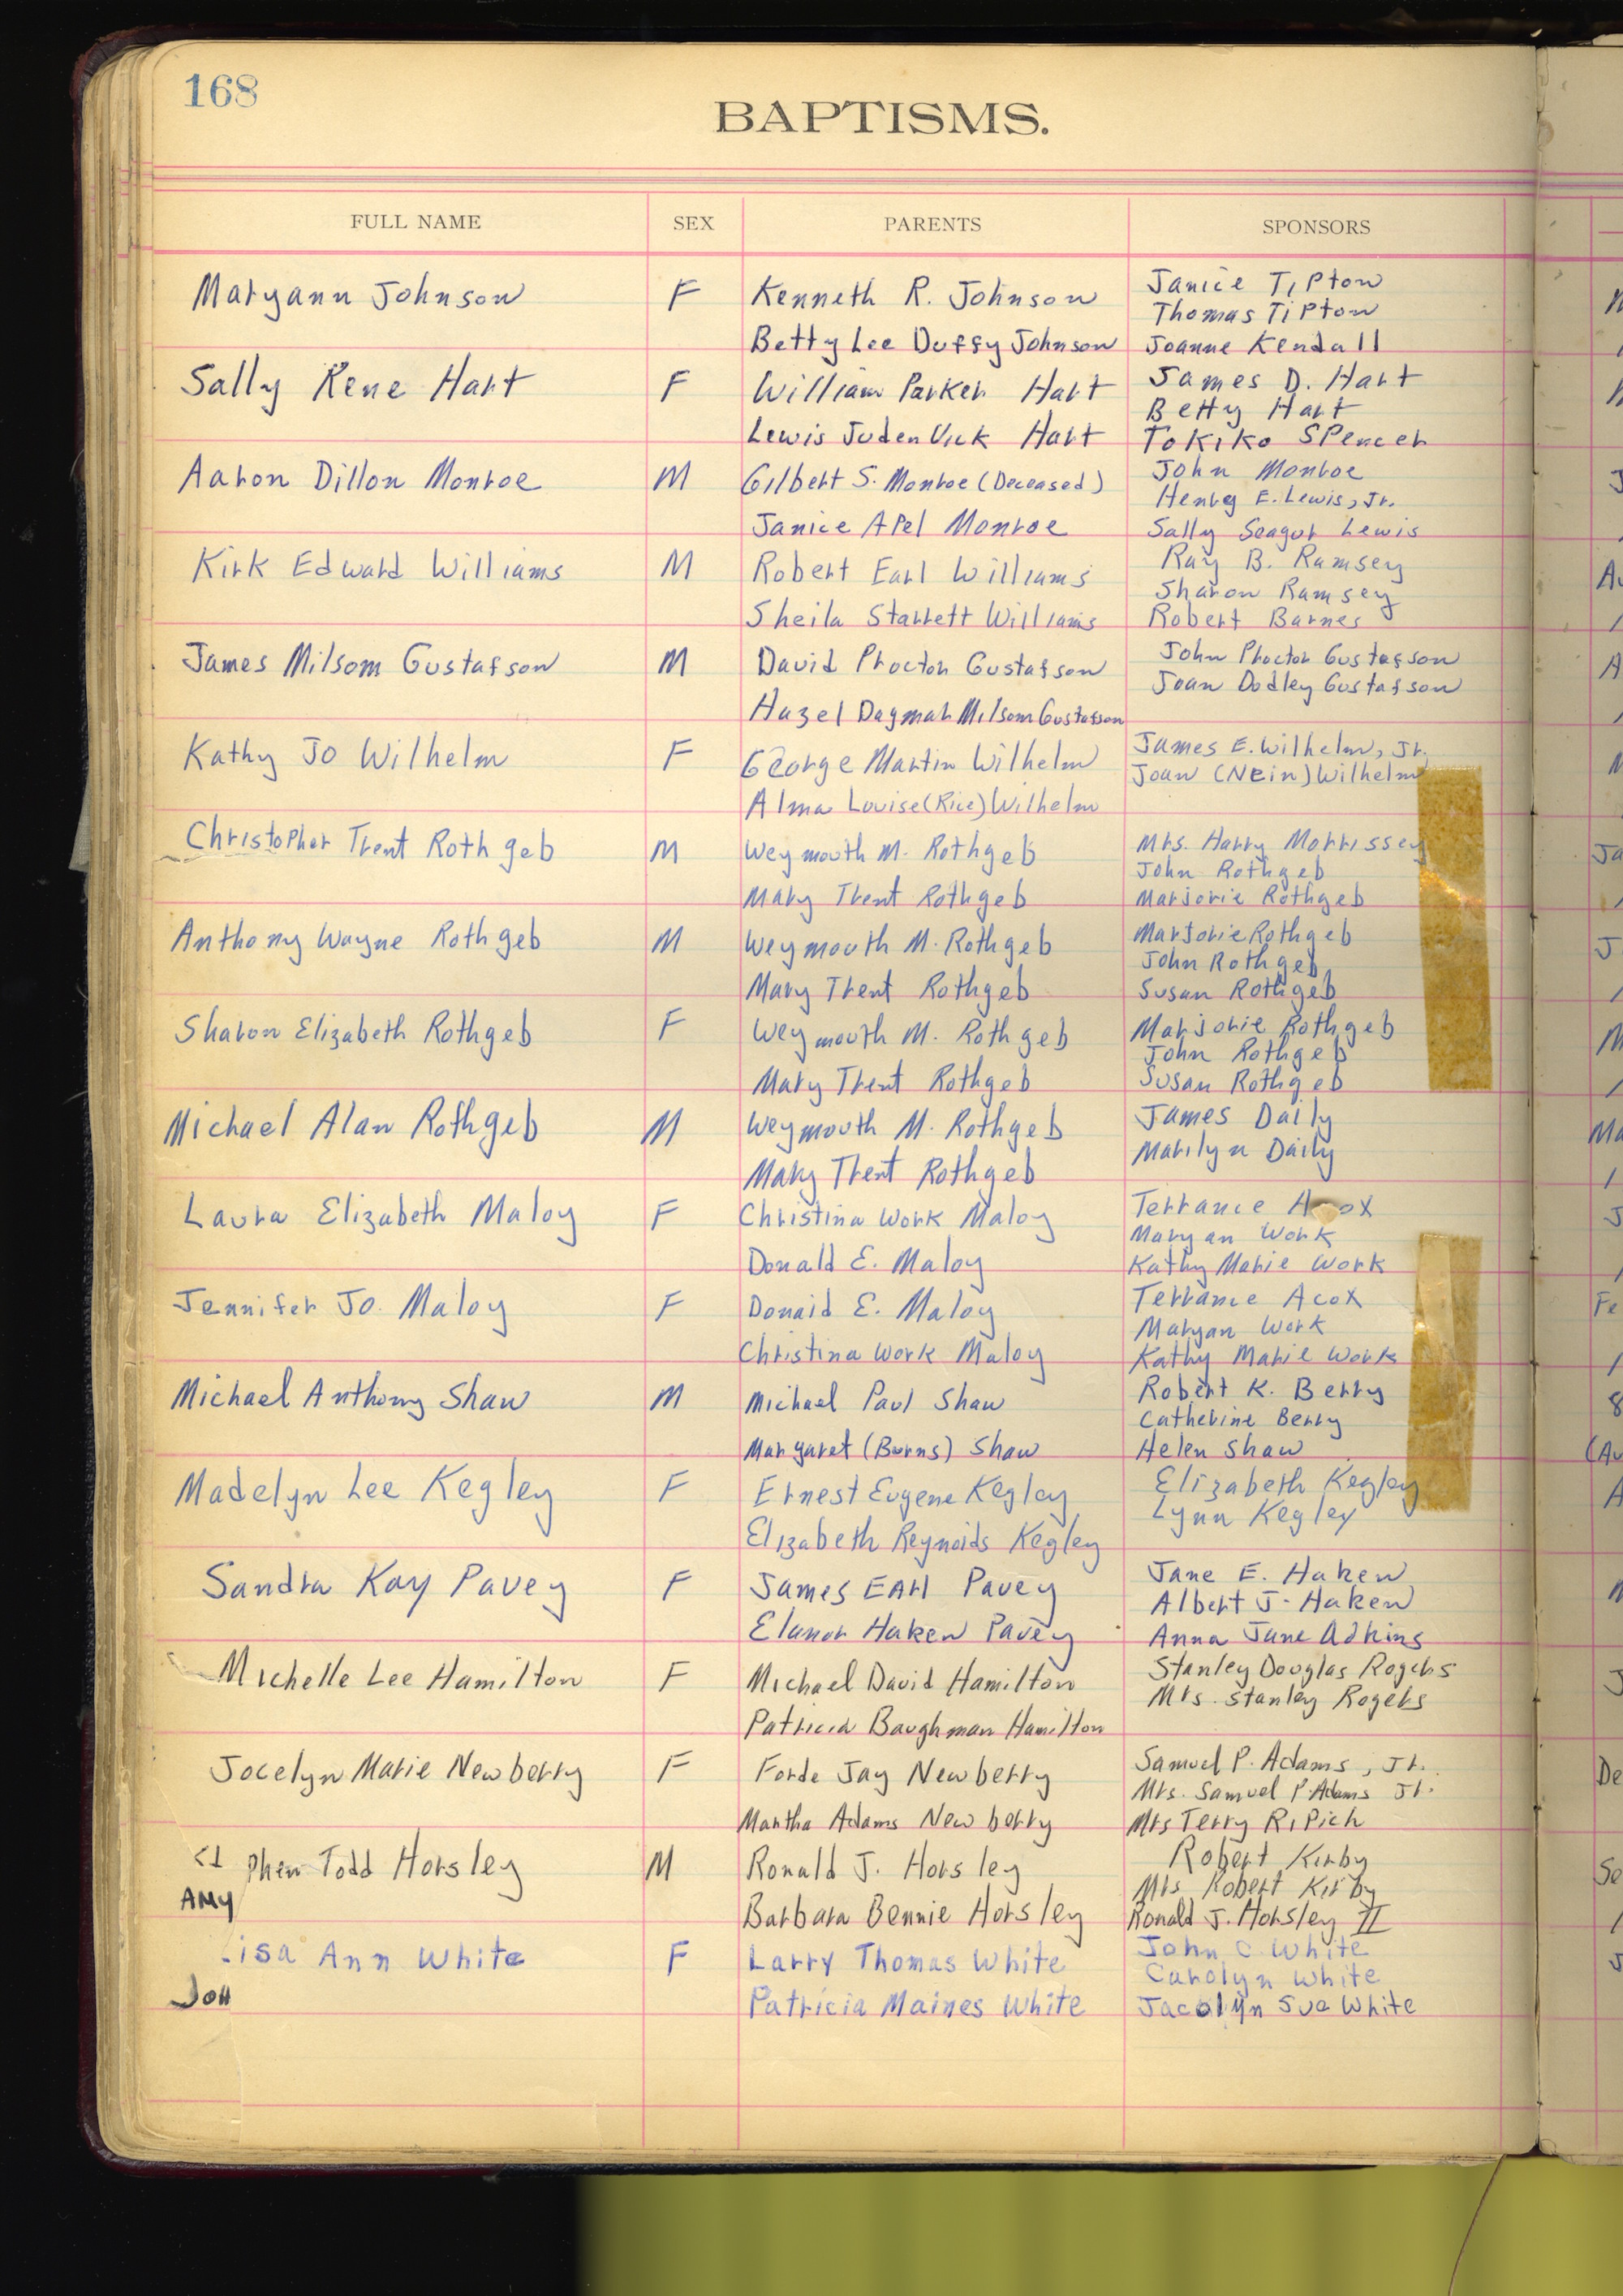 168
BAPTISMS.
FULL NAME SEX PARENTS SPONSORS
Maryann Johnson F Kenneth R. Johnson Janice Tipton
Thomas Tipton
Betty Lee Duffy Johnson Joanne Kendall
Sally Rene Hart F William Parker Hart James D. Hart
Betty Hart
Lewis Juden Vick Hart Tokiko Spencer
Aaron Dillon Monroe M Gilbert S. Monroe (Deceased) John Monroe
Henry E. Lewis, Jr.
Janice Apel Monroe Sally Seagur Lewis
Kirk Edward Williams M Robert Earl Williams Ray B. Ramsey
Sharon Ramsey
Sheila Starrett Williams Robert Barnes
James Milsom Gustafson M David Proctor Gustafson John Proctor Gustafson
Joan Dudley Gustafson
Hazel Dagmar Milsom Gustafson
Kathy Jo Wilhelm F George Martin Wilhelm James E. Wilhelm, Jr.
Joan (Nein) Wilhelm
Alma Louise (Rice) Wilhelm
Christopher Trent Rothgeb M Weymouth M. Rothgeb Mrs. Harry Morrissey
John Rothgeb
Mary Trent Rothgeb Marjorie Rothgeb
Anthony Wayne Rothgeb M Weymouth M. Rothgeb Marjorie Rothgeb
John Rothgeb
Mary Trent Rothgeb Susan Rothgeb
Sharon Elizabeth Rothgeb F Weymouth M. Rothgeb Marjorie Rothgeb
John Rothgeb
Mary Trent Rothgeb Susan Rothgeb
Michael Alan Rothgeb M Weymouth M. Rothgeb James Daily
Marilyn Daily
Mary Trent Rothgeb
Laura Elizabeth Maloy F Christina Work Maloy Terrance Acox
Maryan Work
Donald E. Maloy Kathy Marie Work
Jennifer Jo. Maloy F Donald E. Maloy Terrance Acox
Maryan Work
Christina Work Maloy Kathy Marie Work
Michael Anthony Shaw M Michael Paul Shaw Robert K. Berry
Catherine Berry
Margaret (Burns) Shaw Helen Shaw
Madelyn Lee Kegley F Ernest Eugene Kegley Elizabeth Kegley
Lynn Kegley
Elizabeth Reynolds Kegley
Sandra Kay Pavey F James Earl Pavey Jane E. Haken
Albert J. Haken
Elanor Haken Pavey Anna Jane Adkins
Michelle Lee Hamilton F Michael David Hamilton Stanley Douglas Rogers
Mrs. Stanley Rogers
Patricia Baughman Hamilton
Jocelyn Marie Newberry F Forde Jay Newberry Samuel P. Adams, Jr.
Mrs. Samuel P. Adams Jr.
Martha Adams Newberry Mrs Terry Ripich
phen Todd Horsley M Ronald J. Horsley Robert Kirby
Mrs Robert Kirby
Amy Barbara Bennie Horsley Ronald J. Horsley II
isa Ann White F Larry Thomas White John C White
Carolyn White
Jon Patricia Maines White Jacolyn Sue White